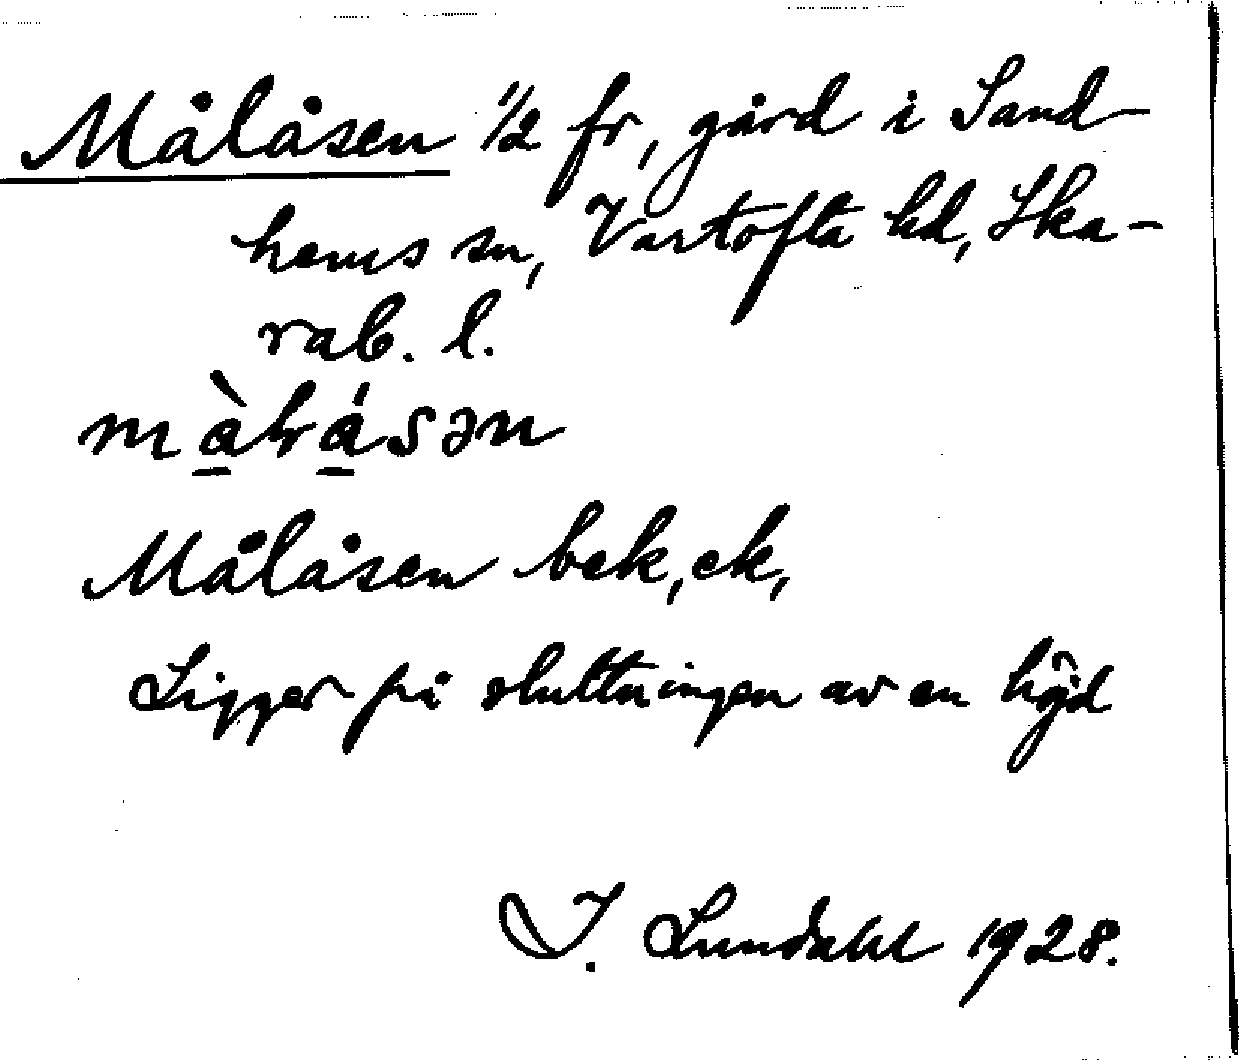 Målåsen 1/2 fr, gård i Sand-
hems sn, Vartofta hd, Ska-
rab. l.
Målåsen bek, ek,
Ligger på sluttningen av en höjd
I. Lundahl 1928.